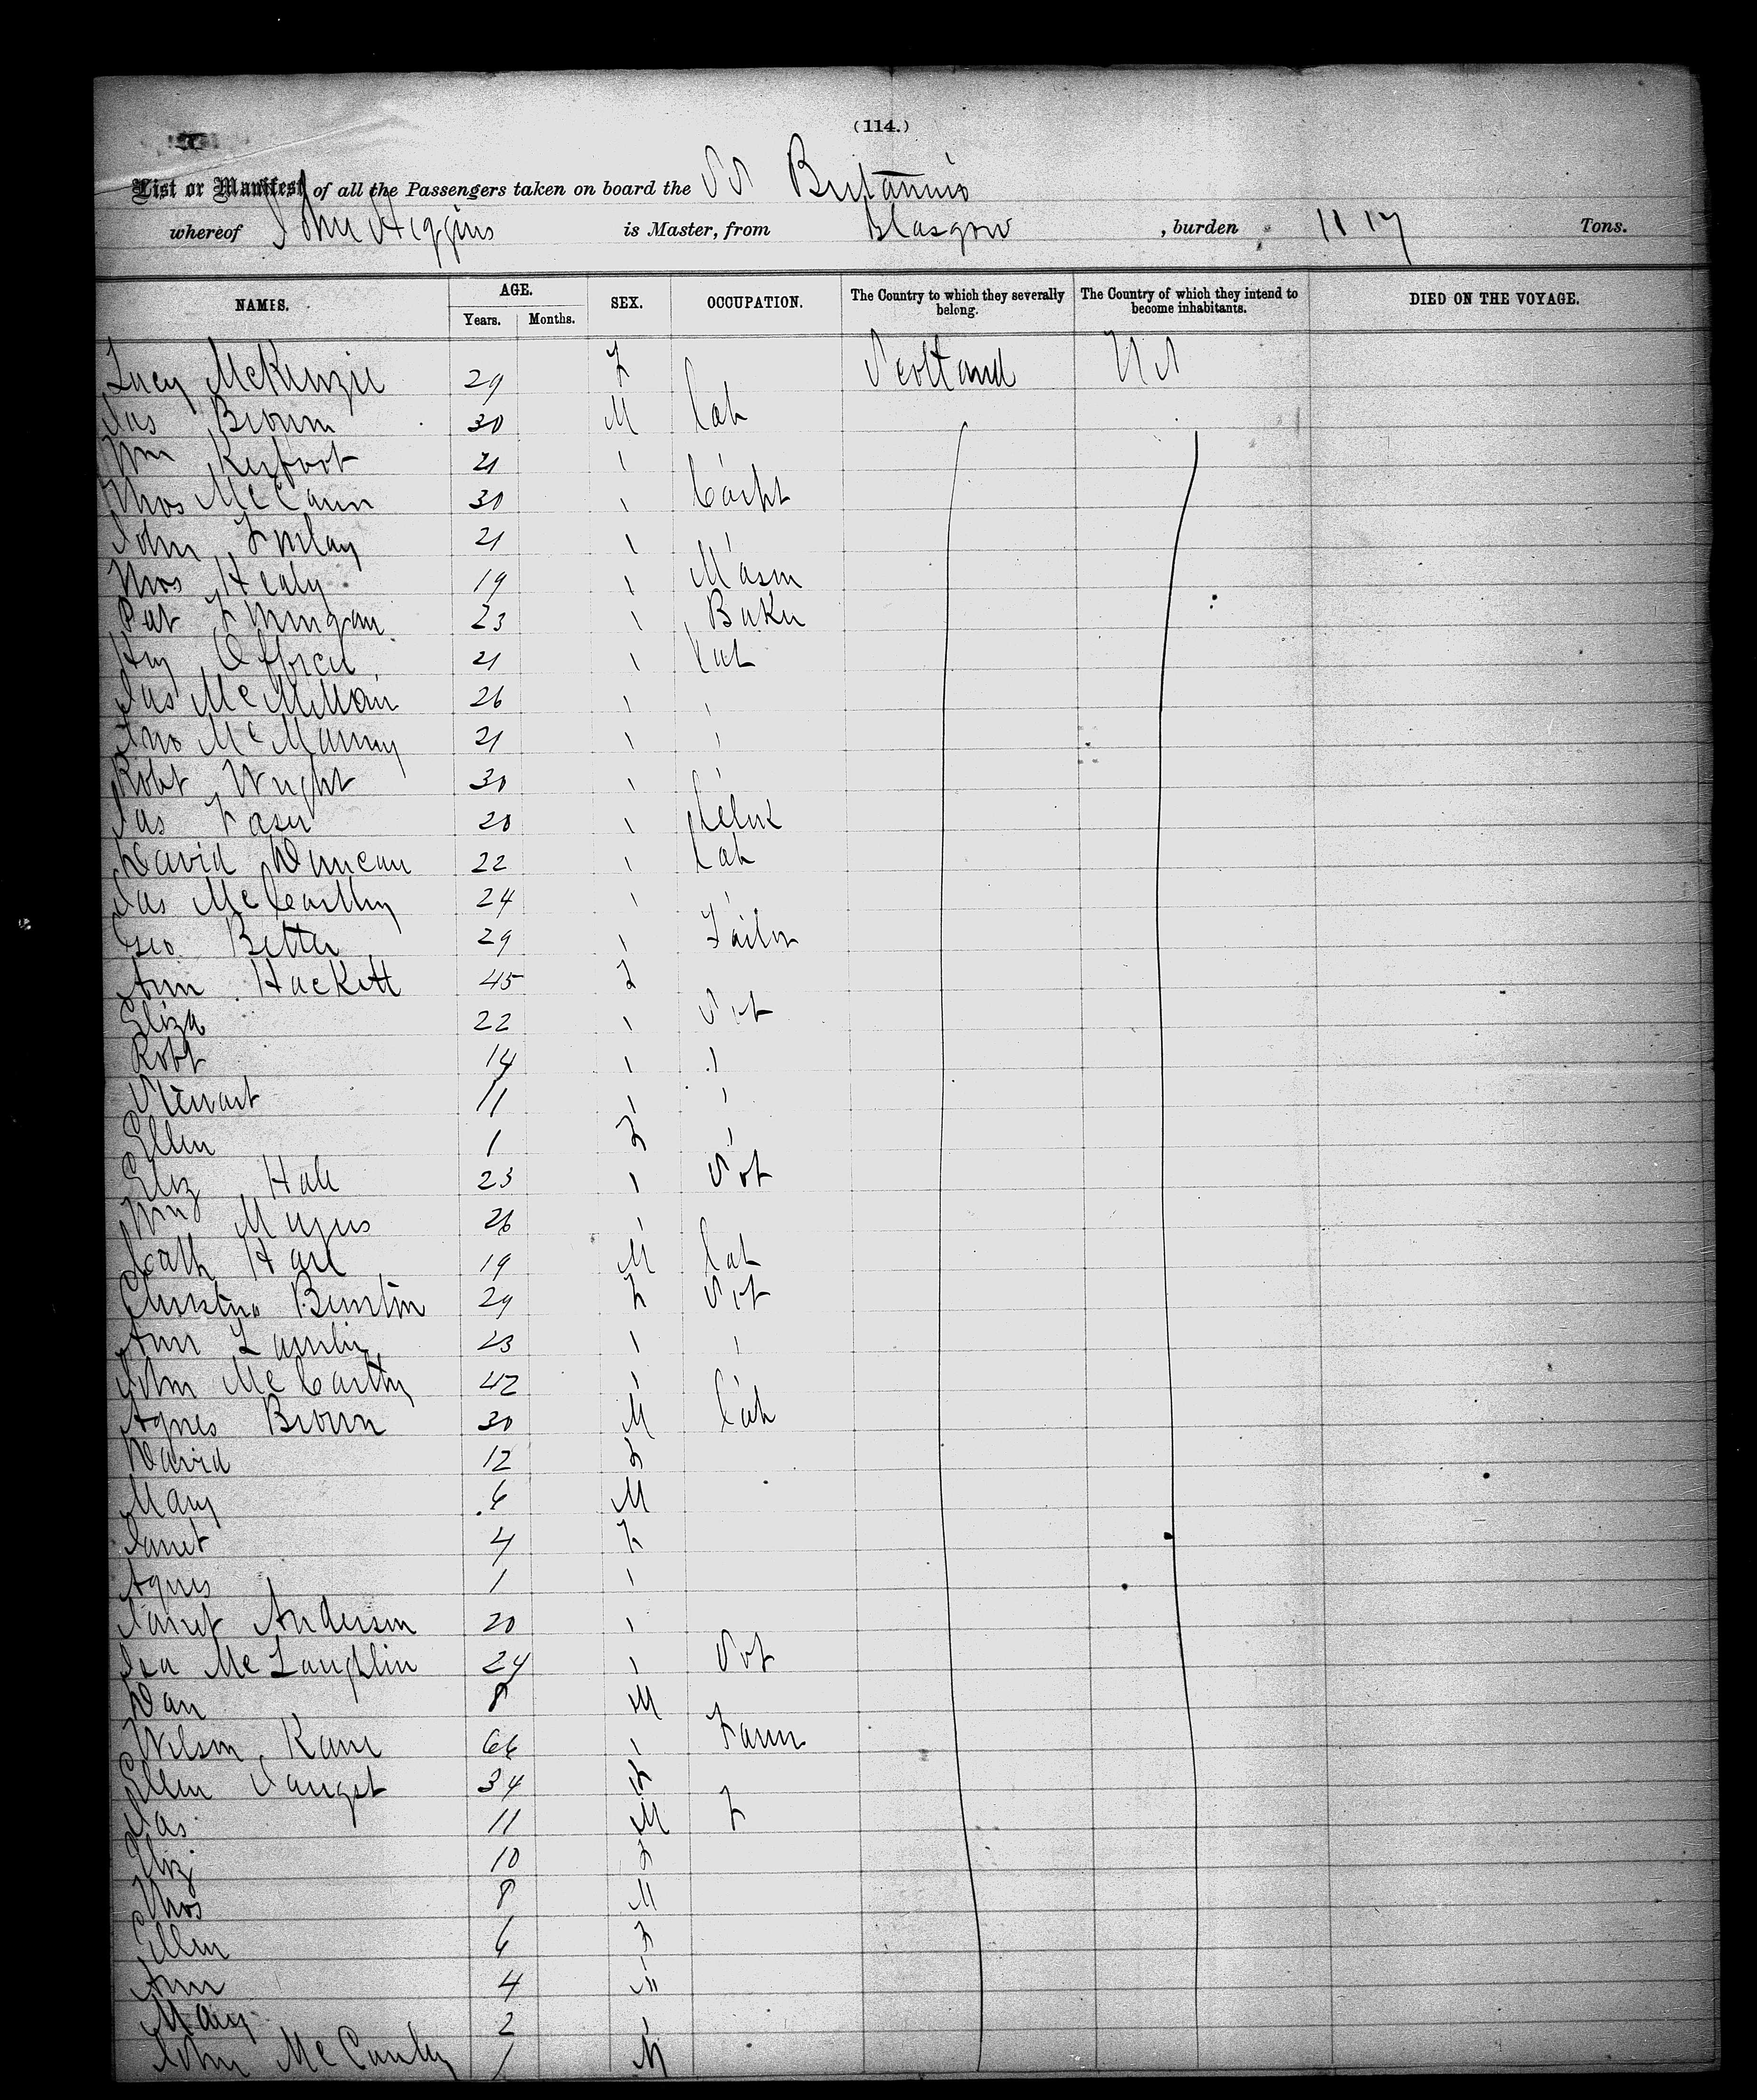 (114.)
List or Manifest of all the Passengers taken on board the SS Britannia
whereof John Higgins is Master, from Glasgow , burden 1117 Tons.
NAMES. AGE. Years. Months. SEX. OCCUPATION. The Country to which they severally belong. The Country of which they intend to become inhabitants. DIED ON THE VOYAGE.
Lucy McKenzie 29 F Scotland US
Jas Brown 30 M Lab
Wm Kerfoot 21 "
Thos McCann 30 " Carpt
John Finlay 21 " "
Thos Healy 19 " Mason
Pat 23 " Baker
Hy 21 " Lab
Jas McMillan 26 " "
Jno McManny 21 " "
Robt Wright 30 " "
Jas Fraser 20 " Clerk
David Duncan 22 " Lab
Jas McCarthy 24 " "
Geo Better 29 " Tailor
Ann Hackett 45 F
Eliza 22 " Spt
Robt 14 " "
Stewart 11 " "
Ellen 1 F "
Eliz Hall 23 " Spt
Wm 26 "
Cath Hare 19 M Lab
Christina Buntin 29 F Spt
Ann 23 " "
John McCarthy 42 " "
Agnes Brown 30 M Lab
David 12 F
Mary 6 M
Janet 4 F
Agnes 1 "
Janet Anderson 20 "
Isa McLaughlin 24 " Spt
Dan 8 M
Wilson Kane 66 " Farm
Ellen 34 F
Jas 11 M F
Eliz 10 F
Thos 8 M
Ellen 6 F
Ann 4 "
Mary 2 "
John 1 M